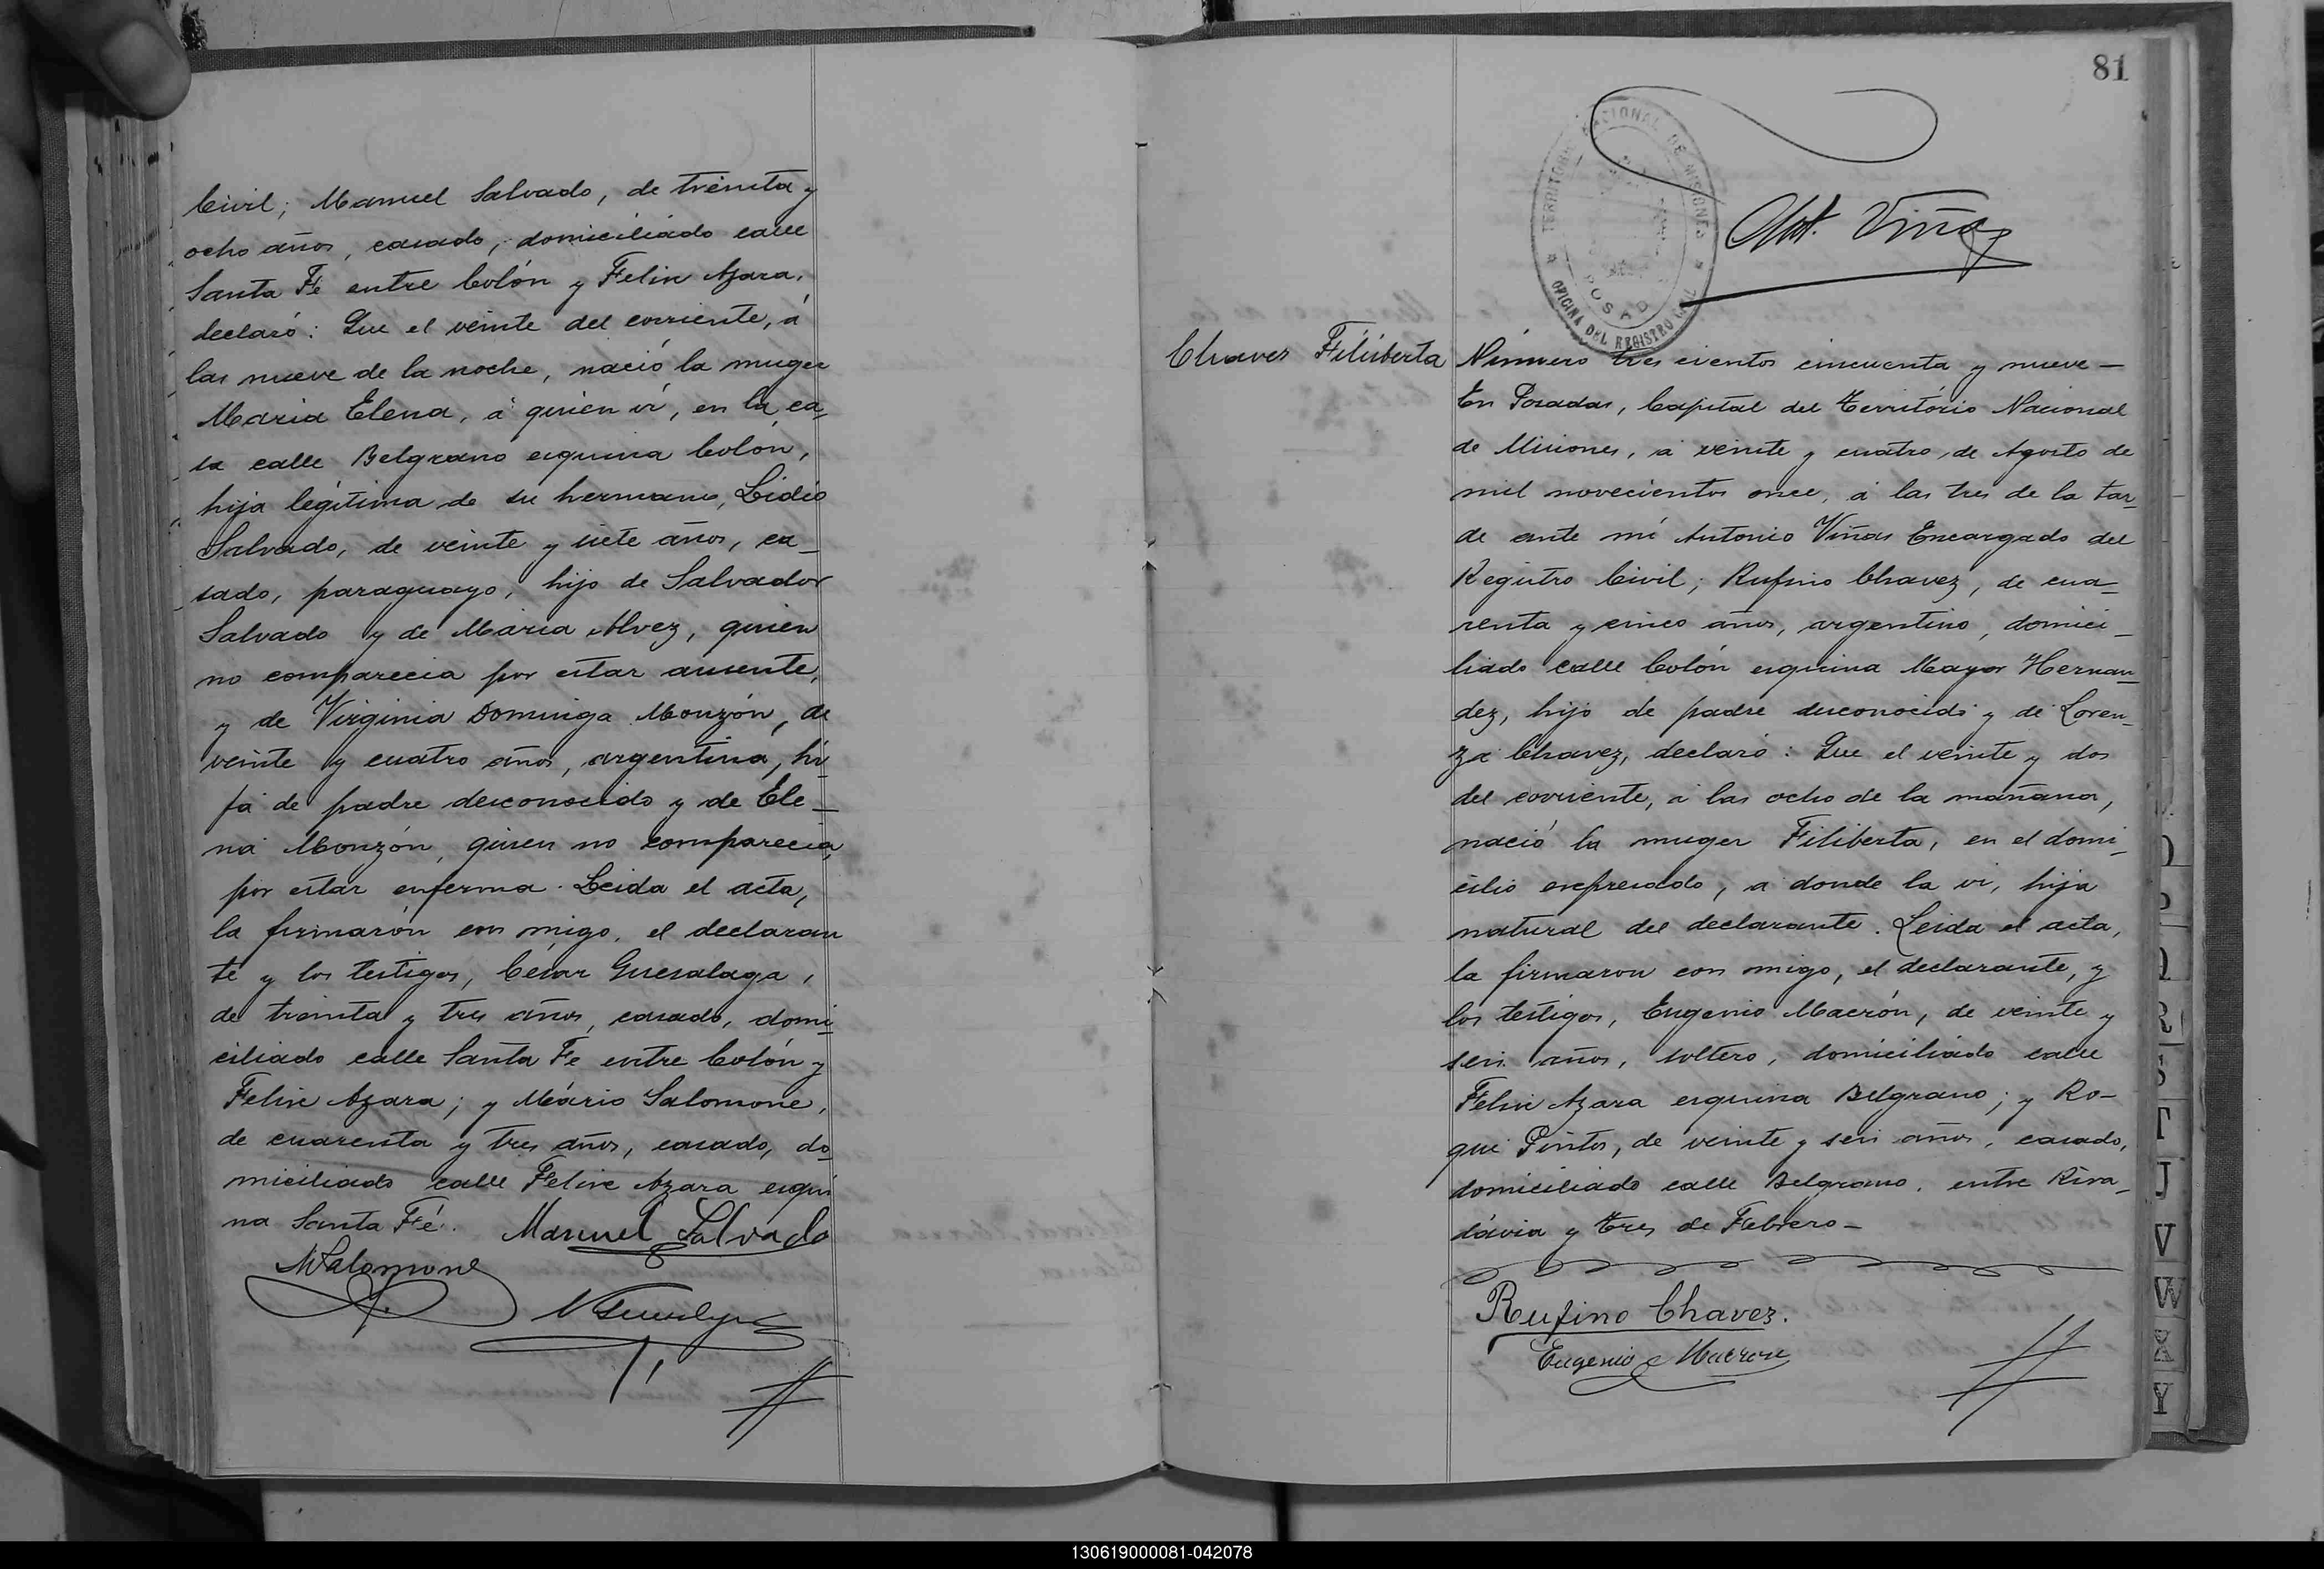 Civil; Manuel Salvado, de treinta y
ocho años, casado, domiciliado calle
Santa Fé entre Colón y Felix Azara,
declaró: Que el veinte del corriente, á
las nueve de la noche, nació la muger
Maria Elena, á quien ví, en la ca-
sa calle Belgrano esquina Colón,
hija legítima de su hermano, Lidio
Salvado, de veinte y siete años, ca-
sado, paraguayo, hijo de Salvador
Salvado y de Maria Alvez, quien
no comparecia por estar ausente,
y de Virginia Dominga Monzón, de
veinte y cuatro años, argentina, hi-
ja de padre desconocido y de Ele-
na Monzón, quien no comparecia,
por estar enferma. Leida el acta,
la firmarón con migo, el declaran
te y los testigos, César Guesalaga,
de treinta y tres años, casado, domi-
ciliado calle Santa Fe entre Colón y
Felix Azara; y Mário Salomone,
de cuarenta y tres años, casado, do-
miciliado calle Felix Azara esqui
na Santa Fé. Manuel Salvado
MSalomone
81
TERRITORIO NACIONAL DE MISIONES
POSADAS
OFICINA DEL REGISTRO CIVIL
Ant. Viñas
Chavez Filiberta
Número tres cientos cincuenta y nueve —
En Posadas, Capital del Território Nacional
de Misiones, á veinte y cuatro, de Agosto de
mil novecientos once, á las tres de la tar-
de ante mí Antonio Viñas Encargado del
Registro Civil; Rufino Chavez, de cua-
renta y cinco años, argentino, domici-
liado calle Colón esquina Mayor Hernan-
dez, hijo de padre desconocido y de Loren-
za Chavez, declaró: Que el veinte y dos
del corriente, á las ocho de la mañana,
nació la muger Filiberta, en el domi-
cilio expresado, a donde la vi, hija
natural del declarante. Leida el acta,
la firmaron con migo, el declarante, y
los testigos, Eugenio Macrón, de veinte y
seis años, soltero, domiciliado calle
Felix Azara esquina Belgrano; y Ro-
que Pintos, de veinte y seis años, casado,
domiciliado calle Belgrano, entre Riva-
davia y Tres de Febrero —
Rufino Chavez.
Eugenio Macron
O
P
Q
R
S
T
J
V
W
X
Y
130619000081-042078